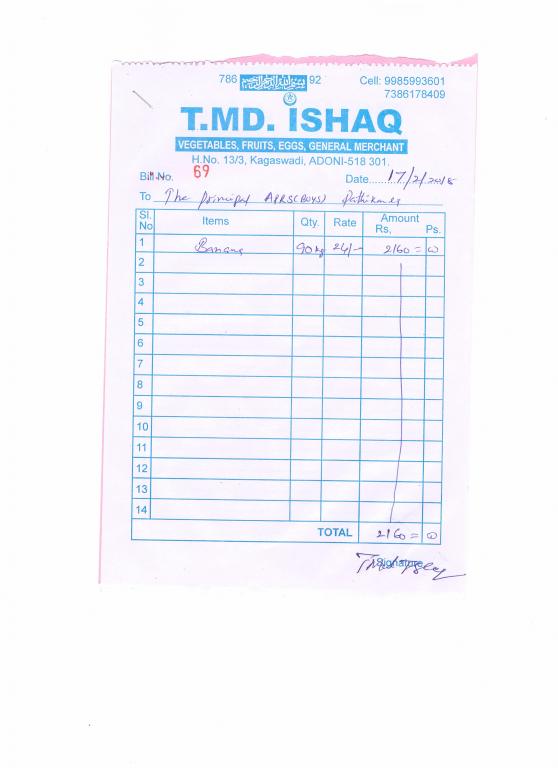 786 92 Cell: 9985993601
7386178409
T.MD. ISHAQ
VEGETABLES, FRUITS, EGGS, GENERAL MERCHANT
H.No. 13/3, Kagaswadi, ADONI-518 301.
Bill.No. 69 Date.......17/2/2018
To The principal APRS(BOYS)
Sl. No Items Qty. Rate Amount Rs, Ps.
1 Banana 90 kg 24/- 2160 = 00
2
3
4
5
6
7
8
9
10
11
12
13
14
TOTAL 2160 = 00
Signature